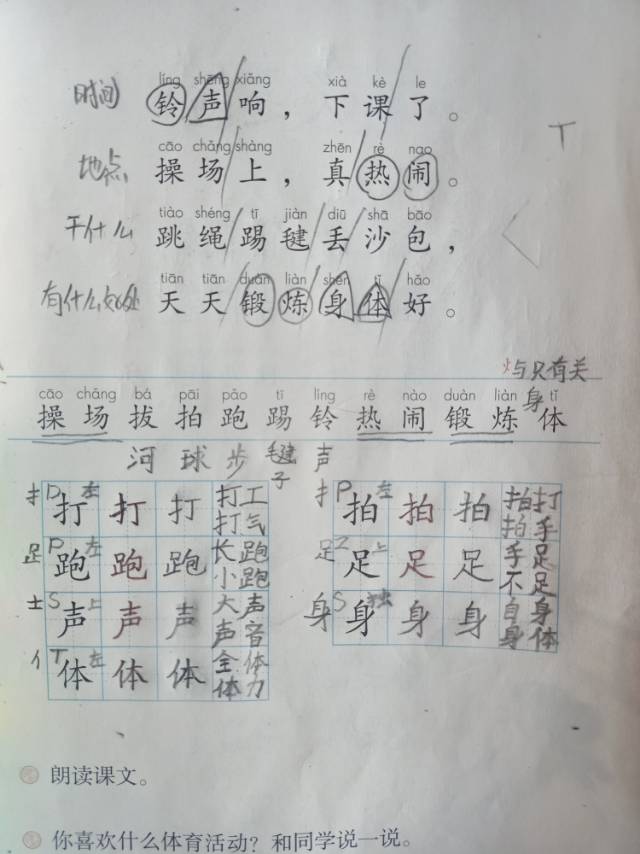 líng shēng xiǎng xià kè le
时间 铃声响，下课了。
cāo chǎng shàng zhēn rè nao
地点 操场上，真热闹。
tiào shéng tī jiàn diū shā bāo
干什么 跳绳踢毽丢沙包，
tiān tiān duàn liàn shēn tǐ hǎo
有什么好处 天天锻炼身体好。
T
火与只有关
cāo chǎng bá pāi pǎo tī líng rè nào duàn liàn tǐ
操场拔拍跑踢铃热闹锻炼身体
河 球 步 毽子 声
扌 D 打 左 打 打 打工 打气
足 P 跑 左 跑 跑 长跑 小跑
士 S 声 上 声 声 大声 声音
亻 T 体 左 体 体 全体 体力
扌 P 拍 左 拍 拍 拍打 拍手
足 Z 足 上 足 足 手足 不足
身 S 身 独 身 身 自身 身体
朗读课文。
你喜欢什么体育活动？和同学说一说。